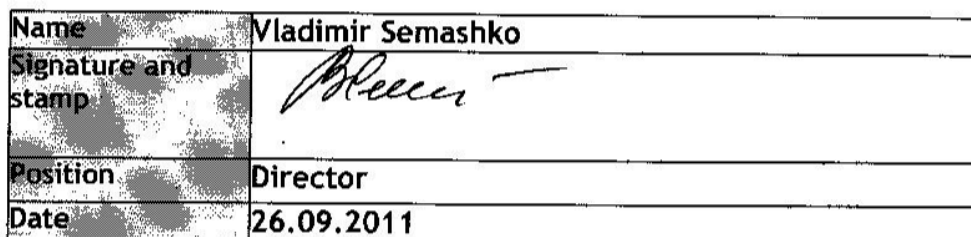 Name Vladimir Semashko
Signature and
stamp
Position Director
Date 26.09.2011